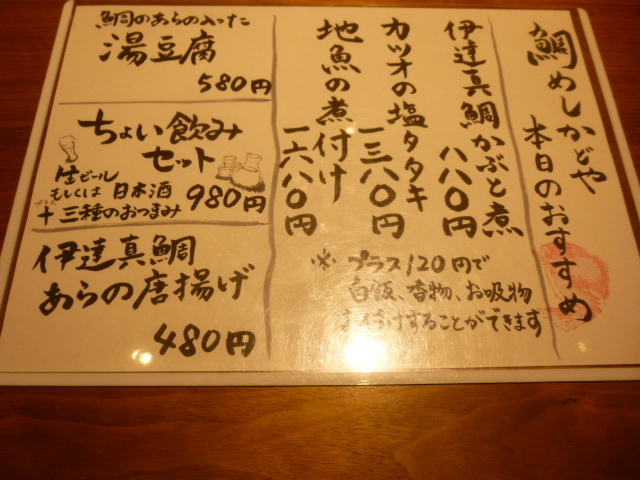 鯛めしかどや
本日のおすすめ
伊達真鯛かぶと煮
八八〇円
カツオの塩タタキ
一三八〇円
地魚の煮付け
一六八〇円
※プラス120円で
白飯、香物、お吸物
することができます
鯛のあらの入った
湯豆腐
580円
ちょい飲み
セット
生ビール
もしくは日本酒
プラス
十三種のおつまみ
980円
伊達真鯛
あらの唐揚げ
480円